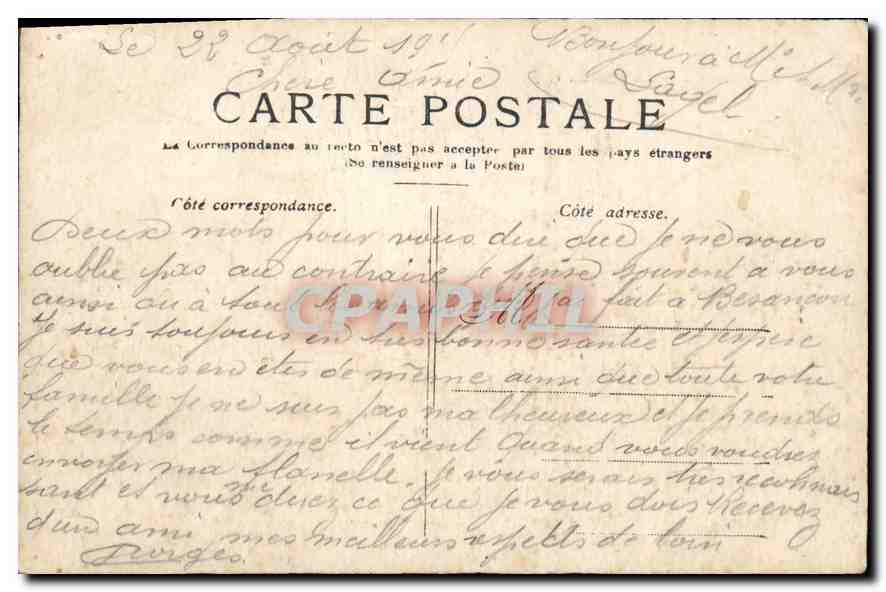 Le 22 Août 191
Bonjour à
Chère Amie
CARTE POSTALE
La Correspondance au recto n'est pas acceptée par tous les pays étrangers
(Se renseigner à la Poste)
Côté correspondance.
Côté adresse.
Deux mots pour vous dire que je ne vous
oublie pas au contraire je pense souvent a vous
ainsi ou à tout le fait à Besancon
CPAPHIL
Je suis toujours en très bonne santée et espère
que vous en etes de même ainsi que toute votre
famille je ne suis pas malheureux et je prends
le temps comme il vient Quand vous voudrez
envoyer ma flanelle. Je vous serais très reconnais
sant et vous me direz ce que je vous dois Recevez
d'un ami mes meilleurs respects de loin
Georges